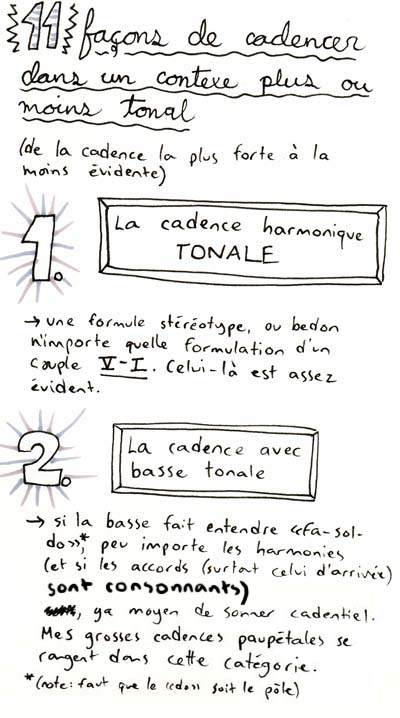 11 façons de cadencer
dans un contexe plus ou
moins tonal
(de la cadence la plus forte à la
moins évidente)
1.
La cadence harmonique
TONALE
→ une formule stéréotype, ou bedon
n'importe quelle formulation d'un
couple V-I. Celui-là est assez
évident.
2.
La cadence avec
basse tonale
→ si la basse fait entendre «fa-sol-
do»,* peu importe les harmonies
(et si les accords (surtout celui d'arrivée)
sont consonnants)
, ya moyen de sonner cadentiel.
Mes grosses cadences paupétales se
rangent dans cette catégorie.
*(note: faut que le «do» soit le pôle)